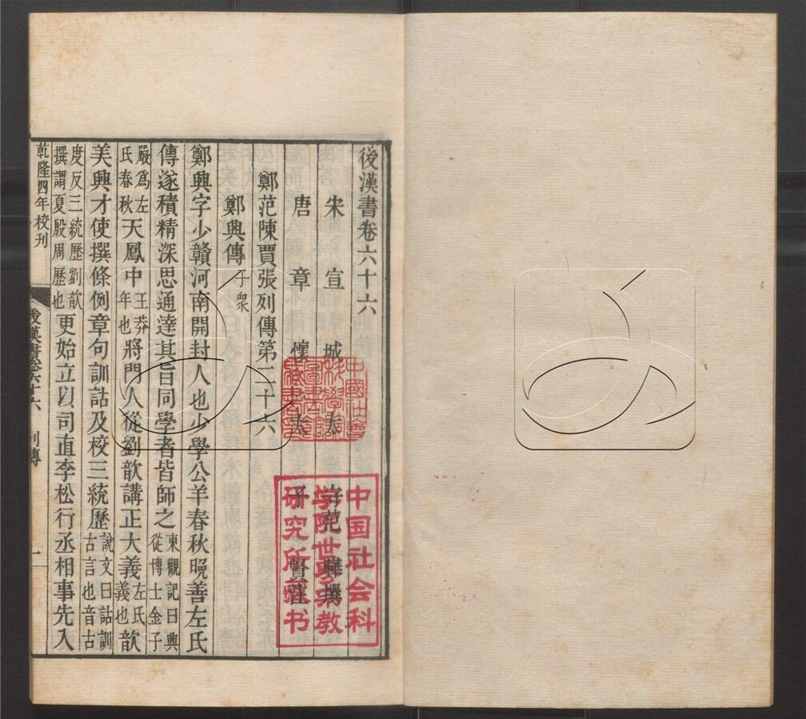 後漢書卷六十六
宋宣城太守范曄撰
唐章懷太子賢注
鄭范陳賈張列傳第二十六
鄭興傳子衆
鄭興字少贛河南開封人也少學公羊春秋晚善左氏
傳遂積精深思通達其旨同學者皆師之東觀記曰興從博士金子
嚴為左氏春秋天鳳中王莽年也將門人從劉歆講正大義左氏義也歆
美興才使撰條例章句訓詁及校三統歷說文曰詁訓古言也音古
度反三統歷劉歆撰謂夏殷周歷也更始立以司直李松行丞相事先入
乾隆四年校刊
後漢書卷六十六 列傳 一
中國社會
科學院
圖書館
藏書章
中国社会科
学院世界宗教
研究所藏书